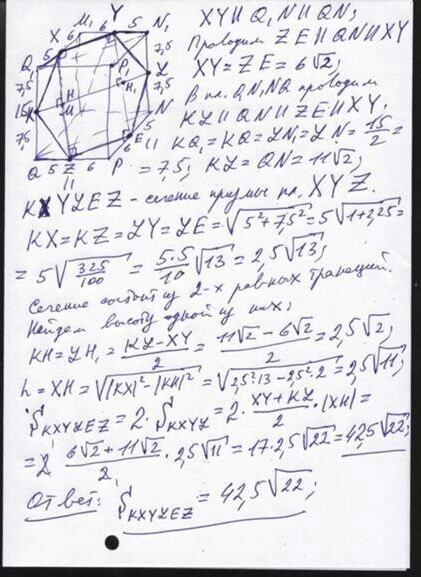 Y
M₁ 6 5 N₁
X 6
Q₁ 5 7,5
7,5 P₁ L
15 K H H₁ 7,5
M N
7,5 5
E
6
Q 5 Z 6 P
11
XY || Q₁N₁ || QN;
Проводим ZE || QN || XY
XY = ZE = 6√2;
В пл. QN₁NQ проводим
KL || QN || ZE || XY.
KQ₁ = KQ = LN₁ = LN = 15/2 =
= 7,5; KL = QN = 11√2;
KXYLEZ - сечение призмы пл. XYZ.
KX = KZ = LY = LE = √(5² + 7,5²) = 5√(1 + 2,25) =
= 5√(325/100) = (5·5/10)√13 = 2,5√13;
Сечение состоит из 2-х равных трапеций.
Найдем высоту одной из них;
KH = LH₁ = (KL - XY)/2 = (11√2 - 6√2)/2 = 2,5√2;
h = XH = √(|KX|² - |KH|²) = √(2,5²·13 - 2,5²·2) = 2,5√11;
S_KXYLEZ = 2·S_KXYL = 2·(XY + KL)/2·|XH| =
= 2 (6√2 + 11√2)/2 · 2,5√11 = 17·2,5√22 = 42,5√22;
Ответ: S_KXYLEZ = 42,5√22;